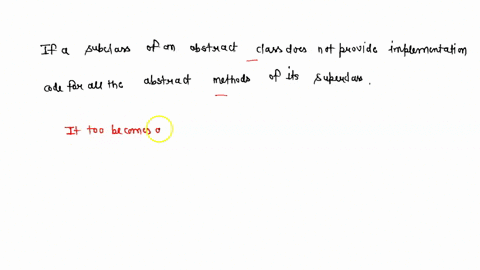 If a subclass of an abstract class does not provide implementation
code for all the abstract methods of its superclass.
It too becomes a